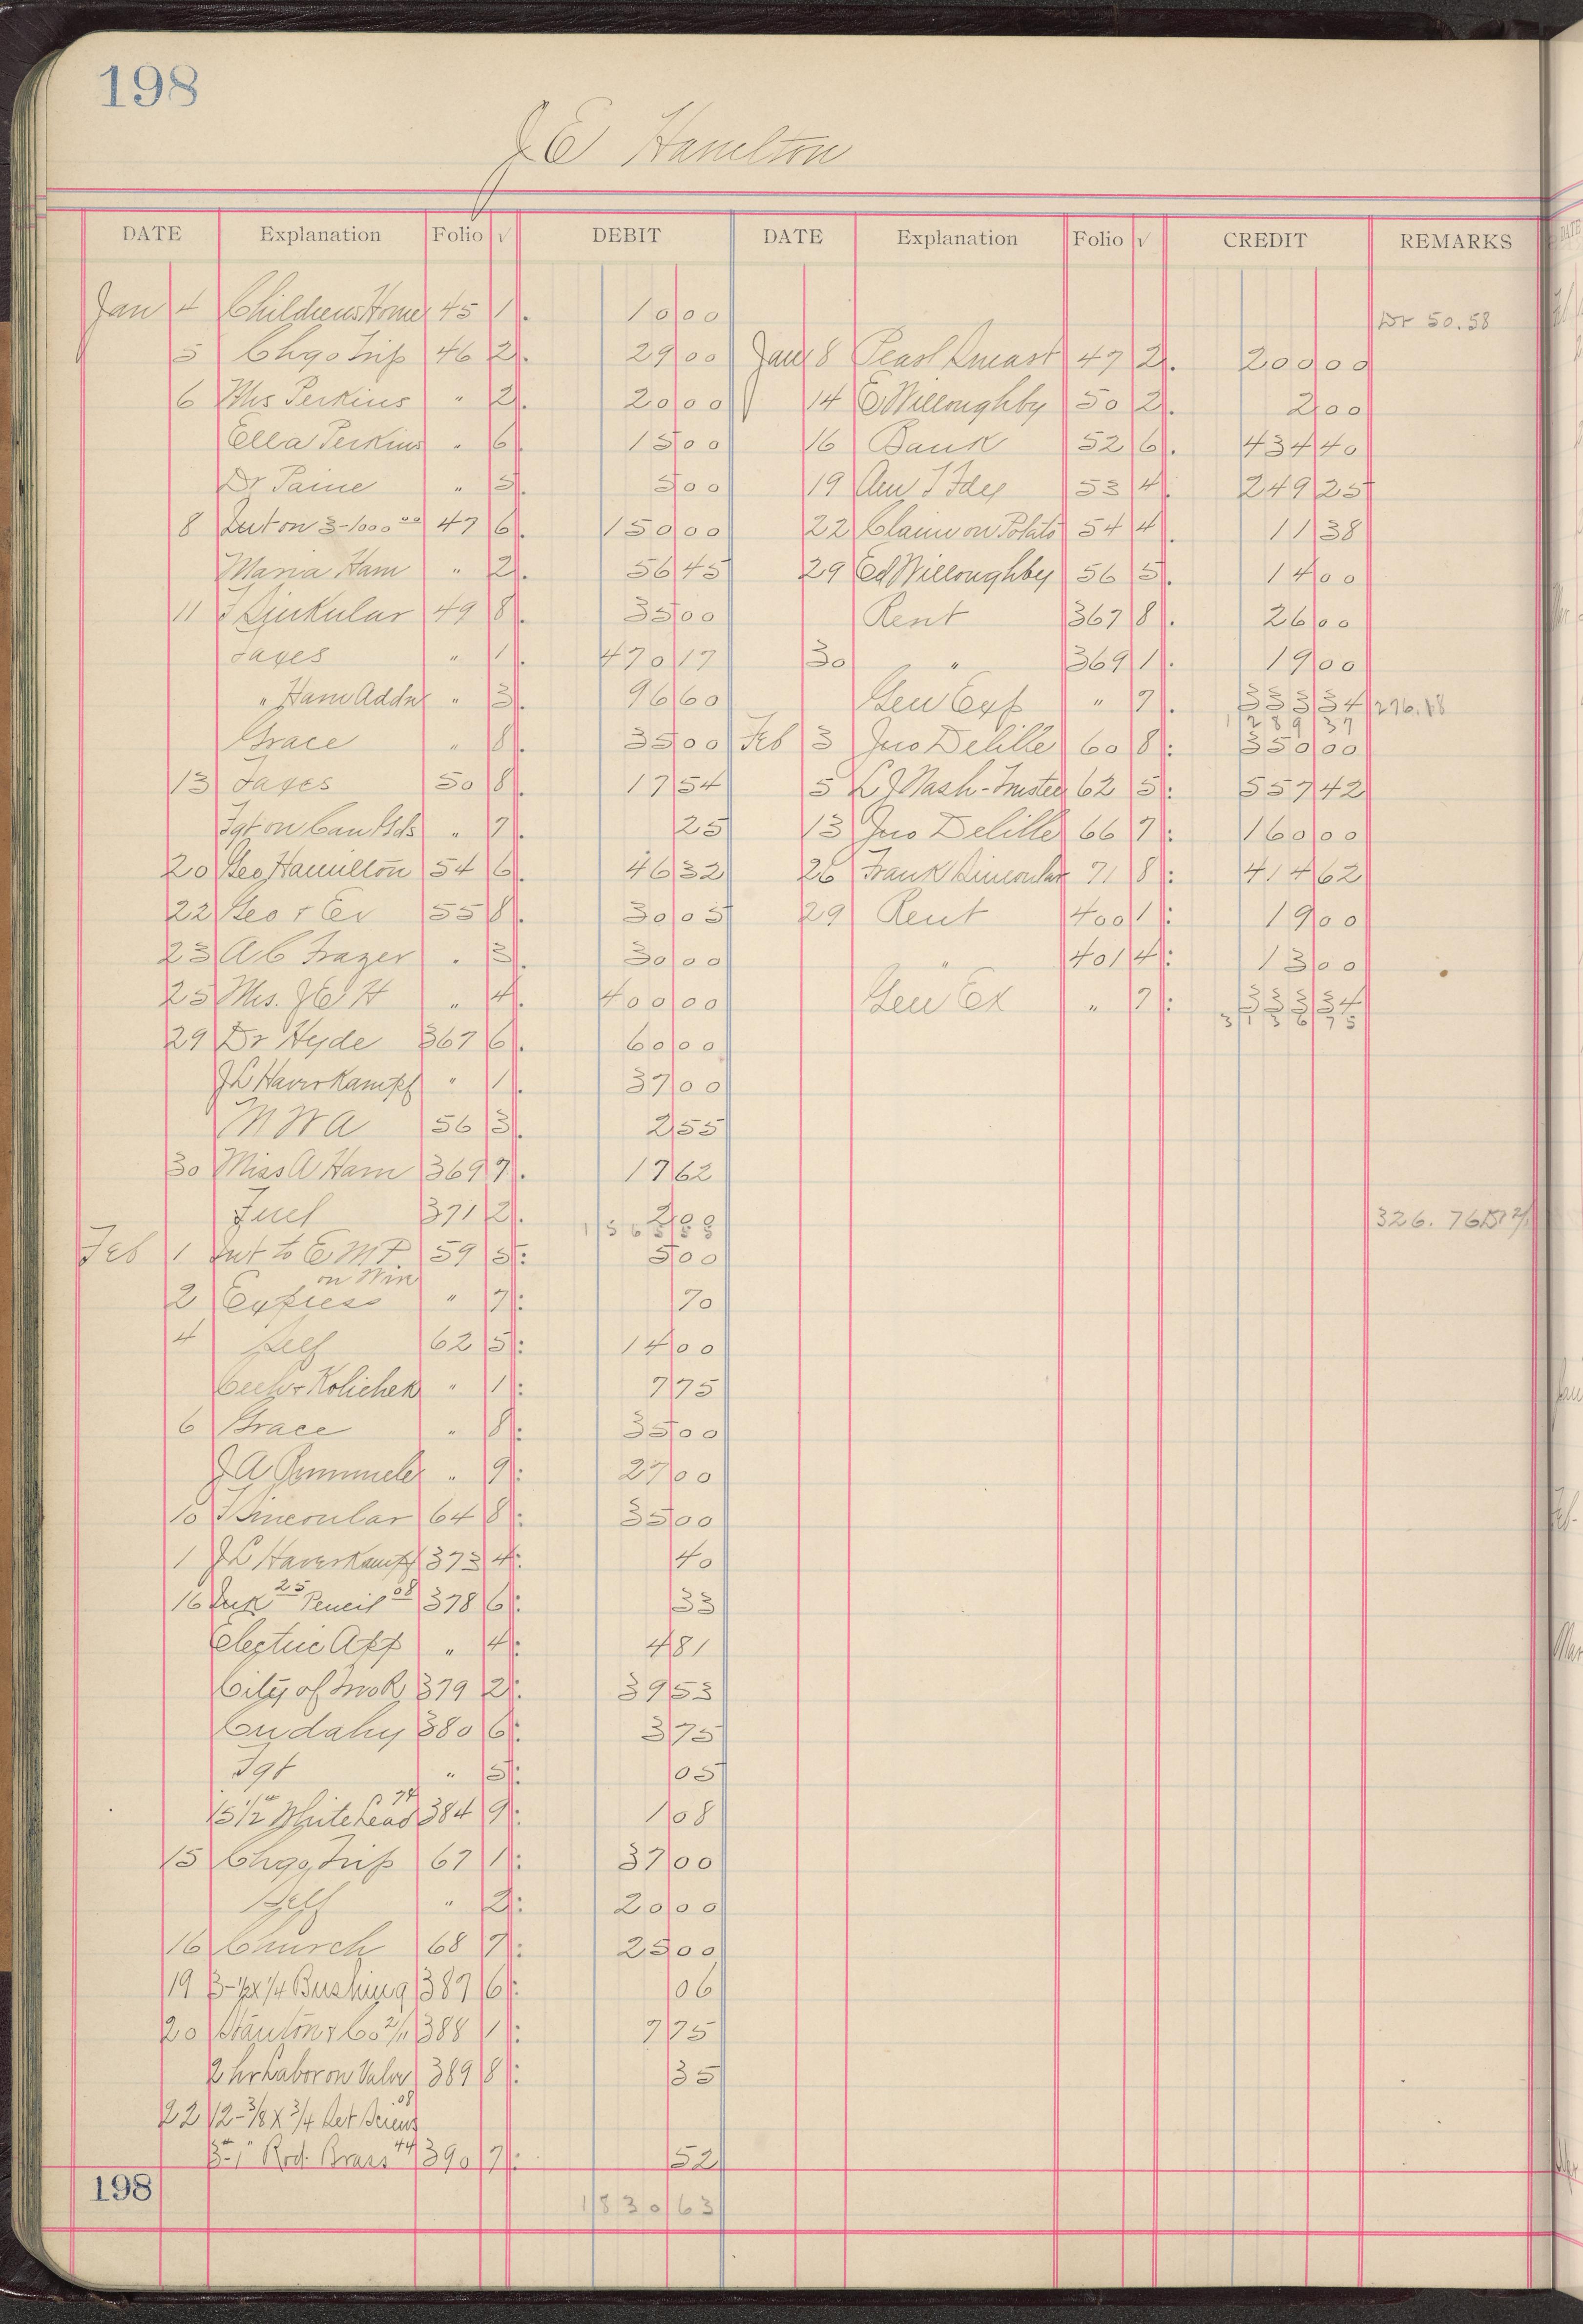 198
J E Hamilton
DATE Explanation Folio √ DEBIT DATE Explanation Folio √ CREDIT REMARKS
Jan 4 Childrens Home 45 1 10 00 Dr 50.58
5 Chgo Trip 46 2 29 00 Jan 8 Pearl 47 2 200 00
6 Mrs Perkins " 2 20 00 14 E Willoughby 50 2 2 00
Ella Perkins " 6 15 00 16 Bank 52 6 434 40
Dr Paine " 5 5 00 19 53 4 249 25
8 Int on 3-1000 00 47 6 150 00 22 Claim on Potato 54 4 11 38
Maria Ham " 2 56 45 29 Ed Willoughby 56 5 14 00
11 49 8 35 00 Rent 367 8 26 00
Taxes " 1 470 17 30 " 369 1 19 00
" Ham Addn " 3 96 60 Gen Exp " 7 333 34 276.18
1289 37
Grace " 8 35 00 Feb 3 Jno Delille 60 8 350 00
13 Taxes 50 8 17 54 5 L J Nash-Trustee 62 5 557 42
Fgt on Can Gds " 7 25 13 Jno Delille 66 7 160 00
20 Geo Hamilton 54 6 46 32 26 Frank Dincular 71 8 414 62
22 Geo & Ev 55 8 30 05 29 Rent 400 1 19 00
23 A C Frazer " 3 30 00 " 401 4 13 00
25 Mrs. J E H " 4 400 00 Gen Ex " 7 333 34
3136 75
29 Dr Hyde 367 6 60 00
J L Haverkampf " 1 37 00
M W A 56 3 2 55
30 Miss A Ham 369 7 17 62
Fuel 371 2 2 00 326.76
1565 55
Feb 1 Int to E M P 59 5 5 00
on Win
2 Express " 7 70
4 Self 62 5 14 00
Cech & Kolichek " 1 7 75
6 Grace " 8 35 00
J A " 9 27 00
10 64 8 35 00
1 J L Haverkampf 373 4 40
16 Ink 25 Pencil 08 378 6 33
Electric App " 4 4 81
City of 379 2 39 53
Cudahy 380 6 3 75
Fgt " 5 05
15 1/2 White Lead 384 9 1 08
15 Chgo Trip 67 1 37 00
Self " 2 20 00
16 Church 68 7 25 00
19 Bushing 387 6 06
20 Stanton & Co 2/11 388 1 7 75
2 hr Labor on Valve 389 8 35
22 12-3/8 x 3/4 Set Screws 08
3-1" Rod. Brass 44 390 7 52
198
1830 63